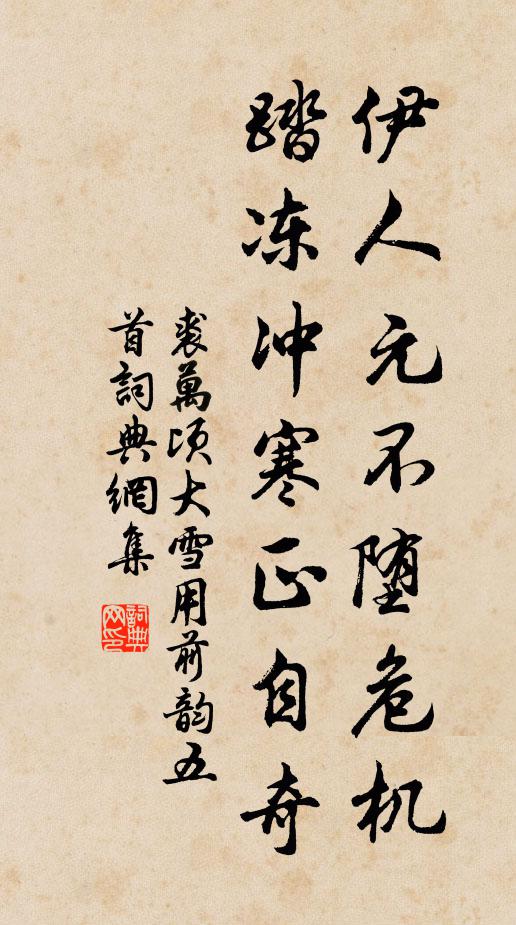 伊人元不堕危机
踏冻冲寒正自奇
裘萬顷大雪用前韵五
首詞典網集
詞典
网印